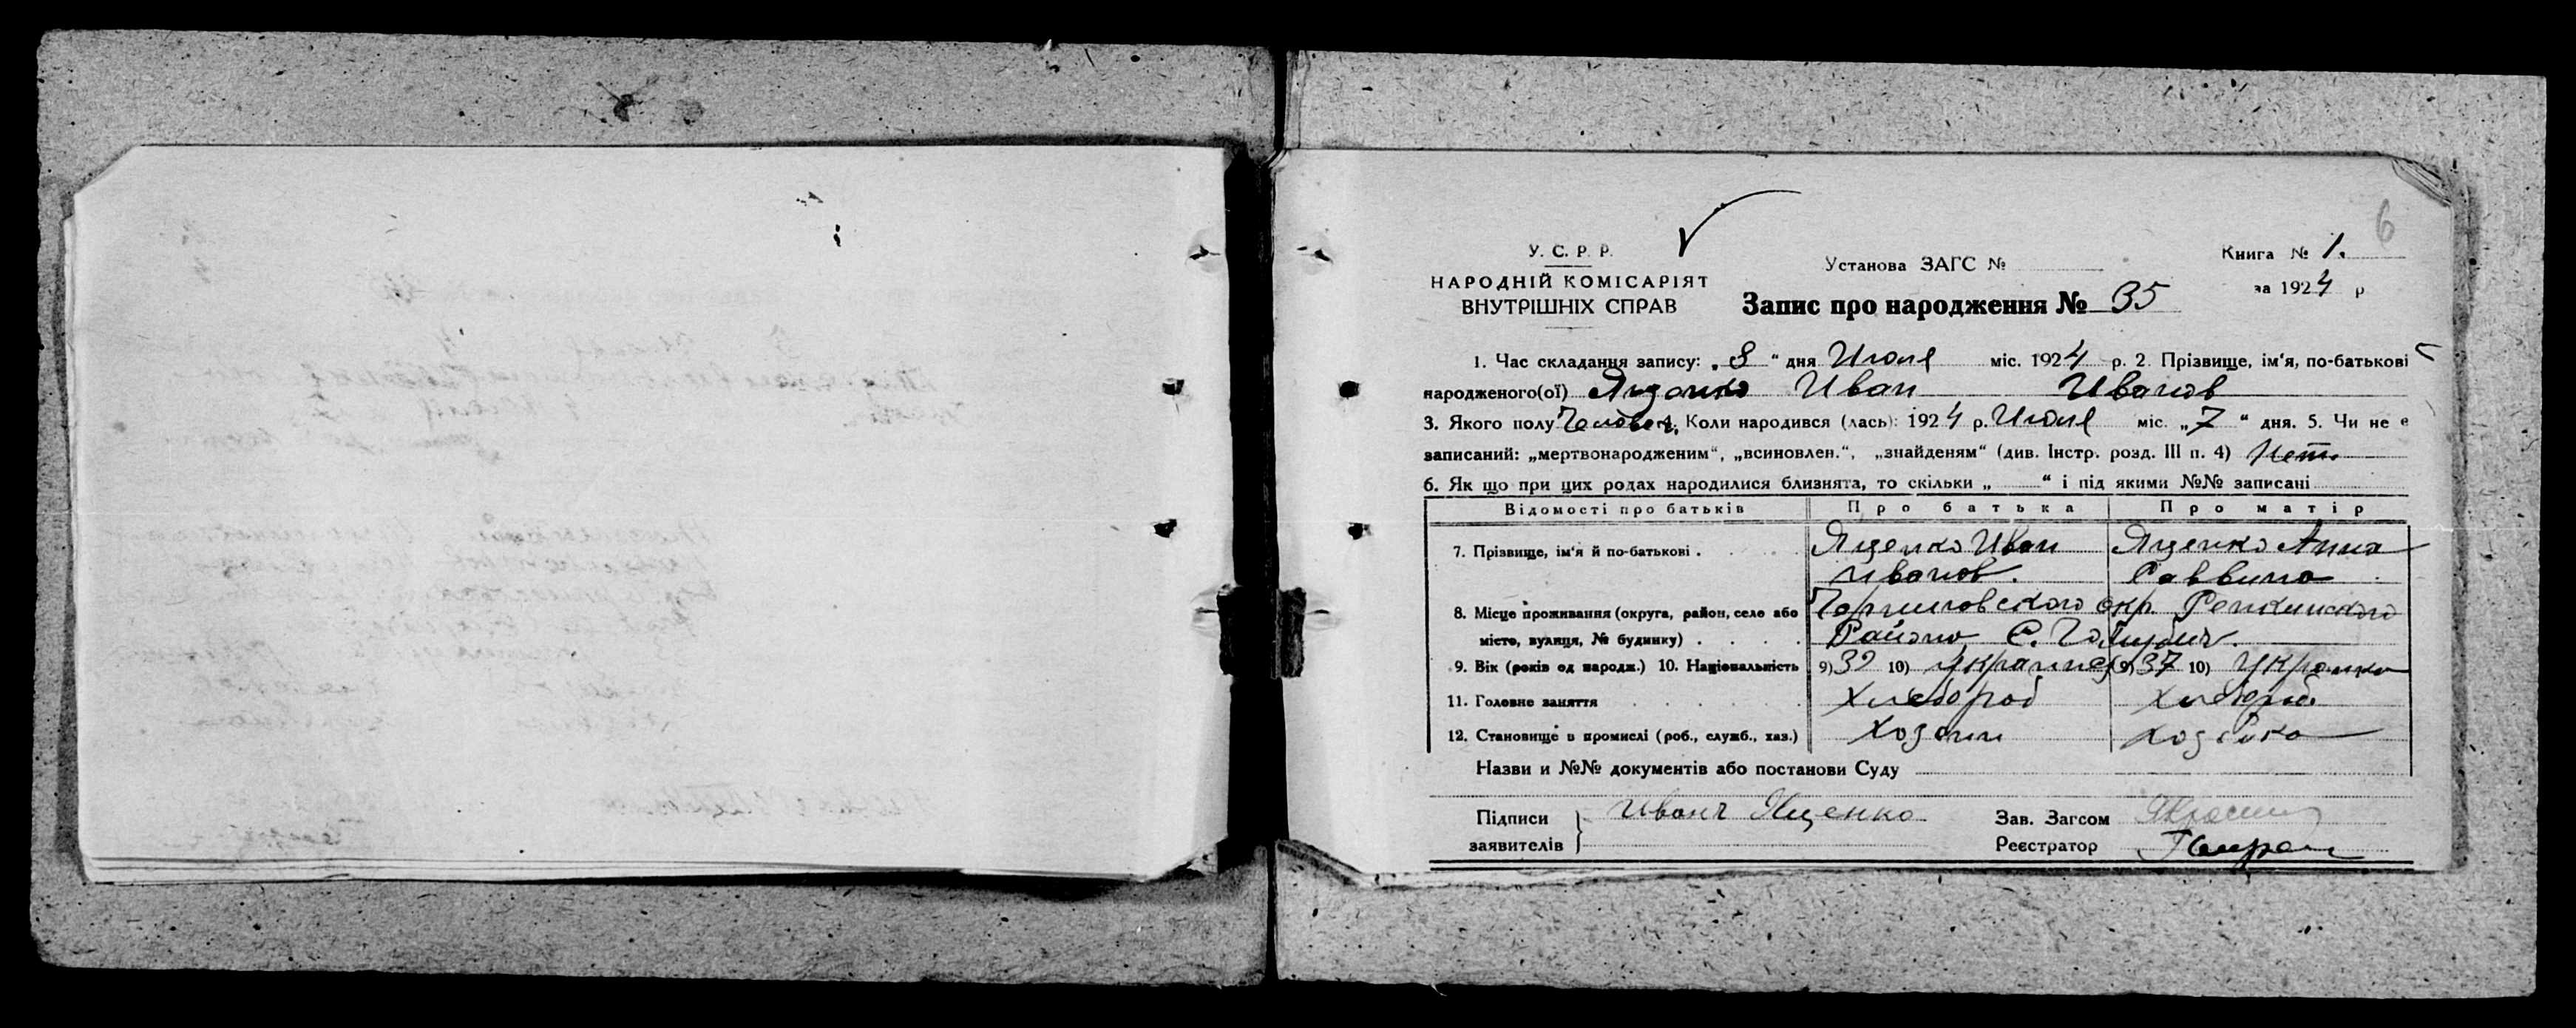 6
У. С. Р. Р.
НАРОДНІЙ КОМІСАРІЯТ
ВНУТРІШНІХ СПРАВ
Установа ЗАГС №
Книга № 1.
за 1924 р
Запис про народження № 35
1. Час складання запису: „8“ дня Июля міс. 1924 р. 2. Прізвище, ім'я, по-батькові
народженого(ої) Яценко Иван Иванов
3. Якого полу Человеч. 4. Коли народився (лась): 1924 р. Июля міс. „7“ дня. 5. Чи не є
записаний: „мертвонародженим“, „всиновлен.“, „знайденям“ (див. Інстр. розд. III п. 4) Нет
6. Як що при цих родах народилися близнята, то скільки „ “ і під якими №№ записані
Відомості про батьків Про батька Про матір
7. Прізвище, ім'я й по-батькові . Яценко Иван Яценко Анна
Иванов. Саввина
8. Місце проживання (округа, район, село або Черниговского окр. Репкинского
місто, вулиця, № будинку) . Района, С.
9. Вік (років од народж.) 10. Національність 9) 39 10) украинец 9) 37 10) Украинка
11. Головне заняття Хлебороб Хлебороб
12. Становище в промислі (роб., служб., хаз.) Хозяин Хозяйка
Назви и №№ документів або постанови Суду
Підписи
заявителів
Иванъ Яценко
Зав. Загсом
Реєстратор